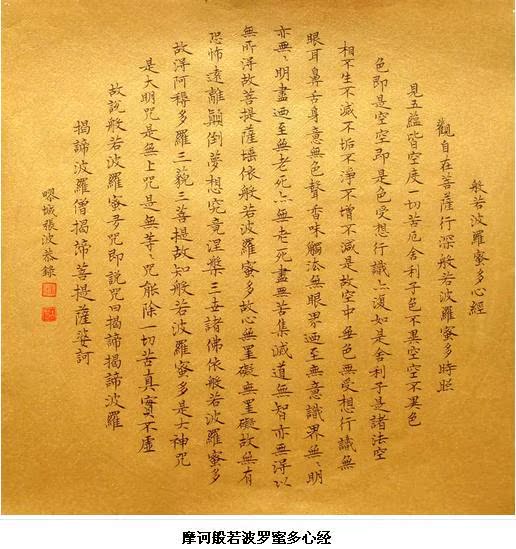 般若波羅蜜多心經
觀自在菩薩行深般若波羅蜜多時照
見五蘊皆空度一切苦厄舍利子色不異空空不異色
色即是空空即是色受想行識亦復如是舍利子是諸法空
相不生不滅不垢不淨不增不減是故空中無色無受想行識無
眼耳鼻舌身意無色聲香味觸法無眼界乃至無意識界無、明
亦無、明盡乃至無老死亦無老死盡無苦集滅道無智亦無得以
無所得故菩提薩埵依般若波羅蜜多故心無罣礙無罣礙故無有
恐怖遠離顛倒夢想究竟涅槃三世諸佛依般若波羅蜜多
故得阿耨多羅三藐三菩提故知般若波羅蜜多是大神咒
是大明咒是無上咒是無等、咒能除一切苦真實不虛
故說般若波羅蜜多咒即說咒曰揭諦揭諦波羅
揭諦波羅僧揭諦菩提薩婆訶
城張波恭錄
摩诃般若波罗蜜多心经